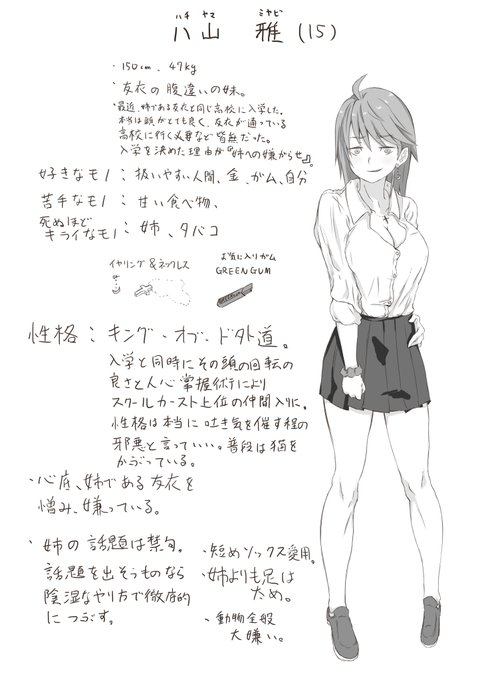 ハチ ヤマ ミヤビ
八山 雅(15)
・150cm、47kg
・友衣の腹違いの妹。
・最近、姉である友衣と同じ高校に入学した。
本当は頭がとても良く、友衣が通っている
高校に行く必要など皆無だった。
入学を決めた理由が『姉への嫌がらせ』。
好きなモノ：扱いやすい人間、金、ガム、自分
苦手なモノ：甘い食べ物、
死ぬほど
キライなモノ：姉、タバコ
イヤリング&ネックレス
お気に入りガム
GREEN GUM
性格：キング・オブ・ド外道。
入学と同時にその頭の回転の
良さと人心掌握術により
スクールカースト上位の仲間入りに。
性格は本当に吐き気を催す程の
邪悪と言っていい。普段は猫を
かぶっている。
・心底、姉である友衣を
憎み、嫌っている。
・姉の話題は禁句。
話題を出そうものなら
陰湿なやり方で徹底的
につぶす。
・短めソックス愛用。
・姉よりも足は
太め。
・動物全般
大嫌い。